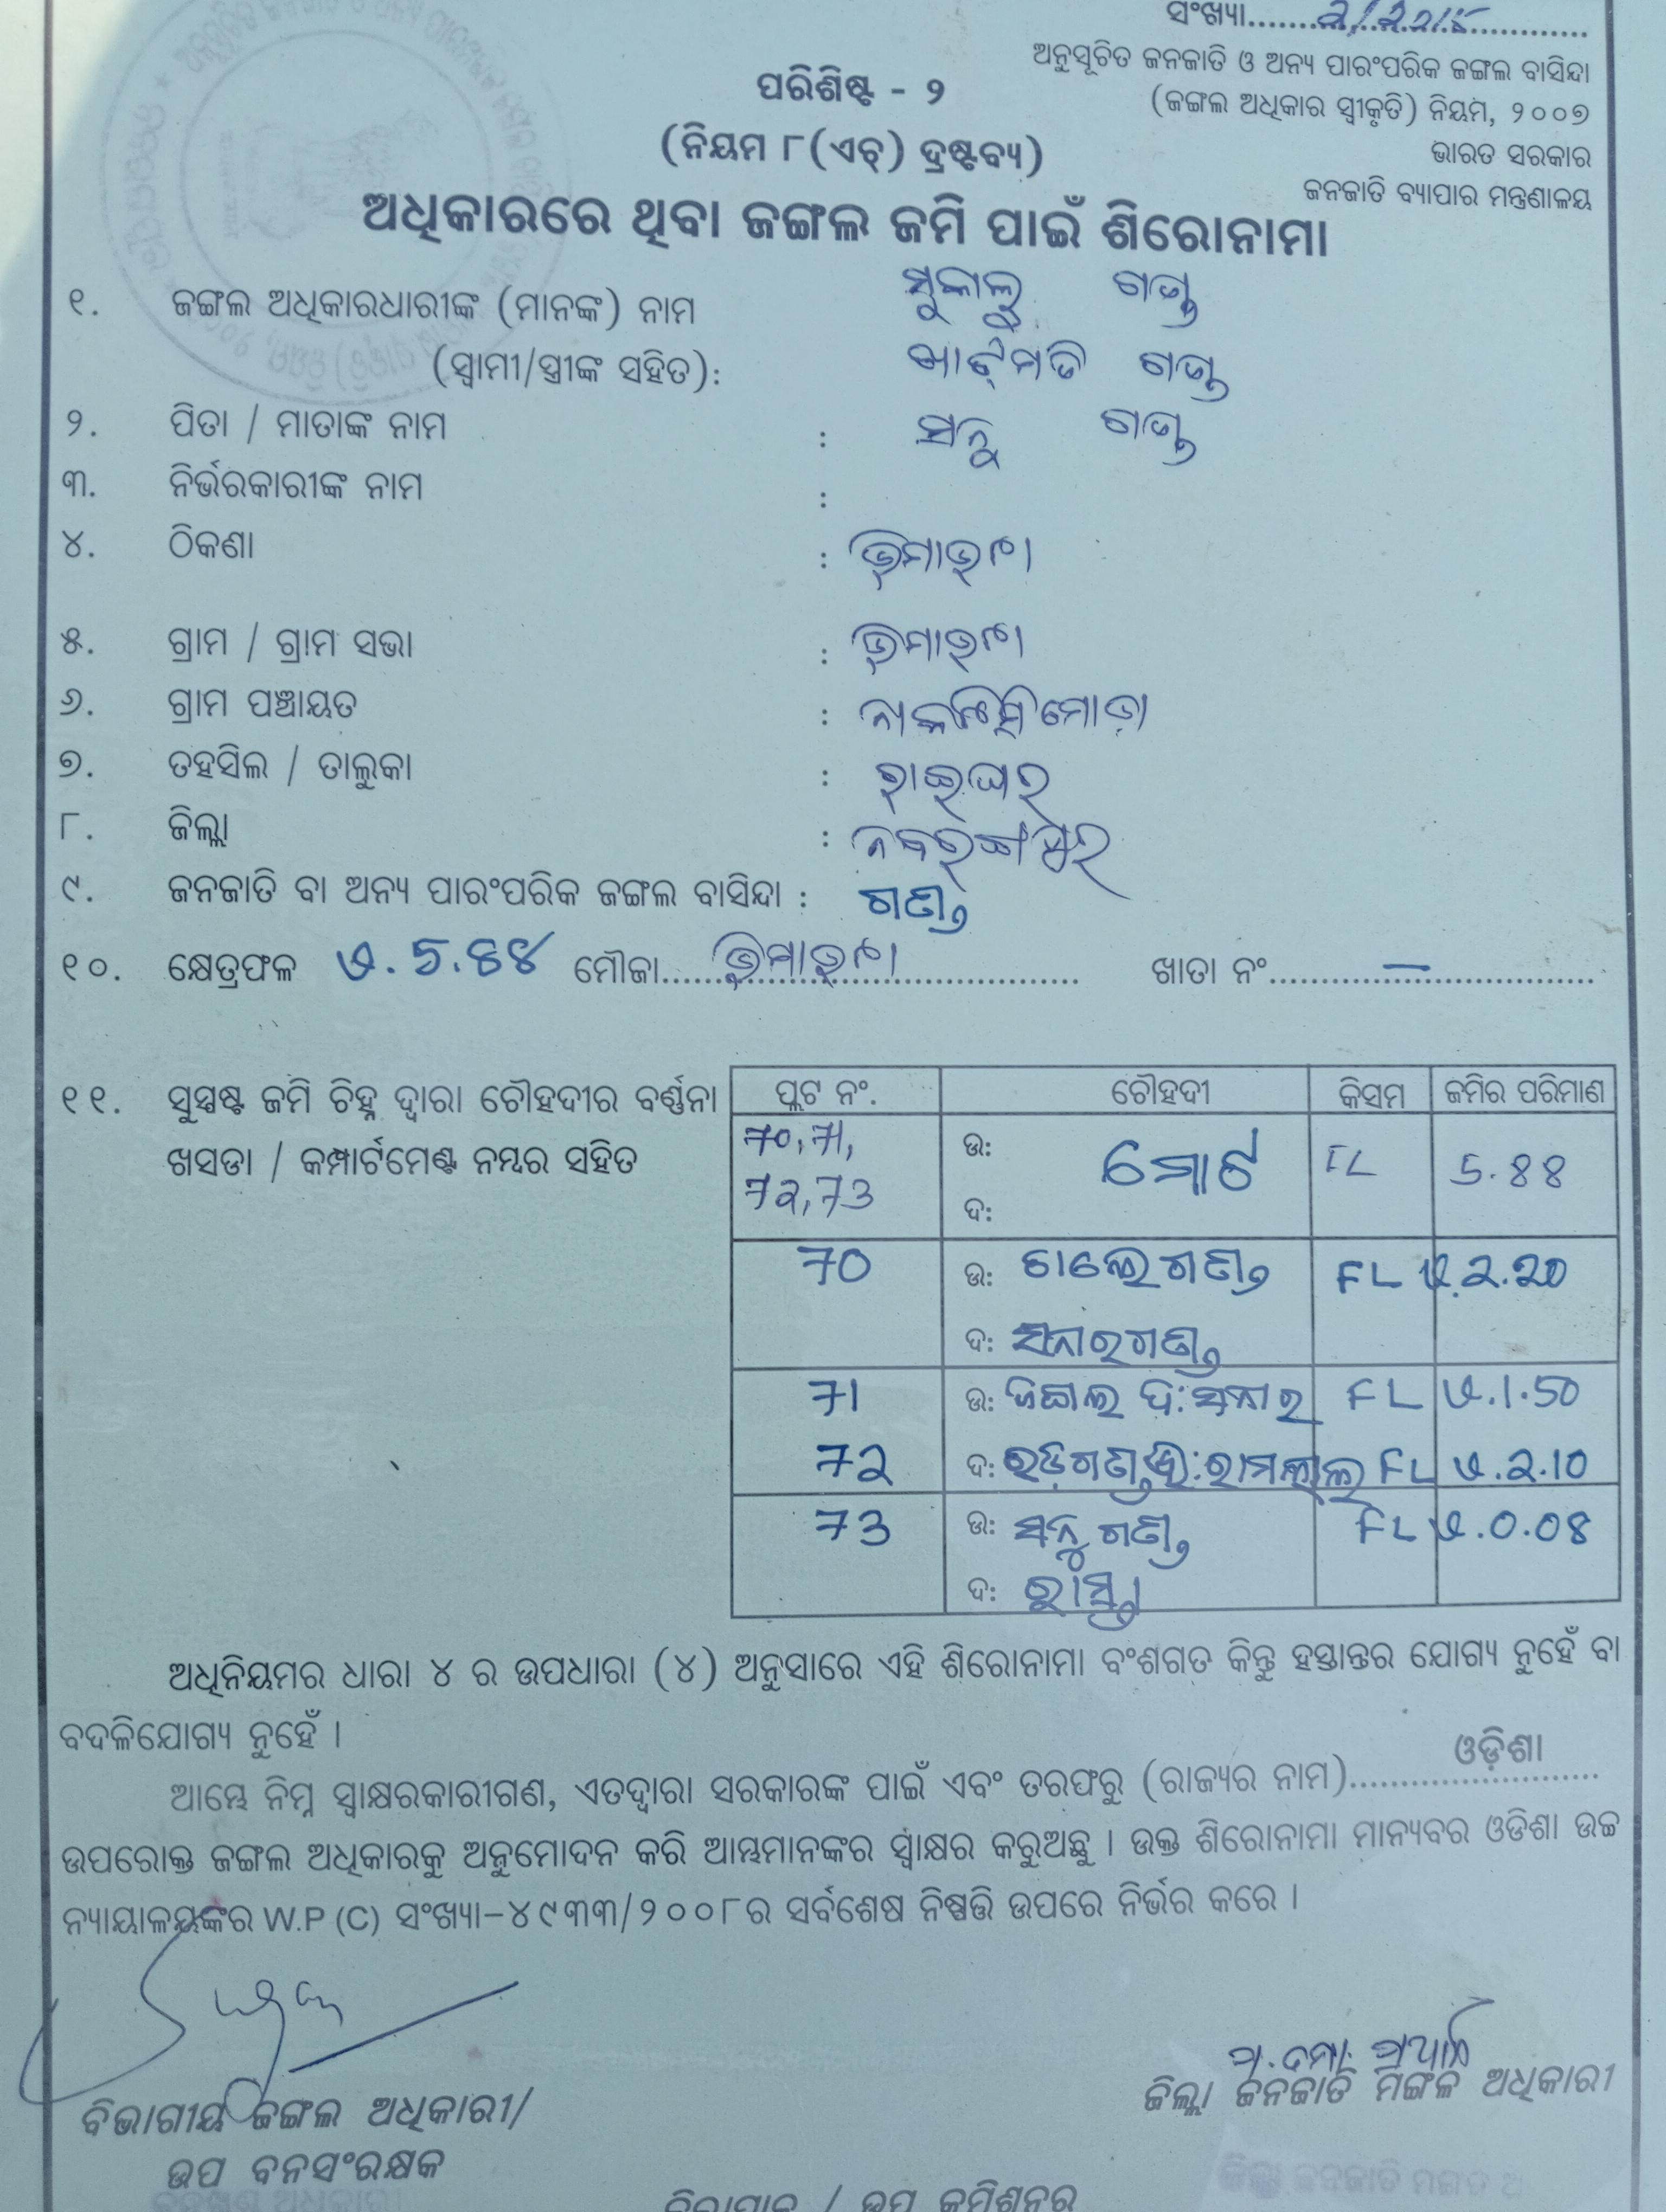 ସଂଖ୍ୟା
ଅନୁସୂଚିତ ଜନଜାତି ଓ ଅନ୍ୟ ପାରଂପରିକ ଜଙ୍ଗଲ ବାସିନ୍ଦା
(ଜଙ୍ଗଲ ଅଧିକାର ସ୍ୱୀକୃତି) ନିୟମ, ୨୦୦୭
ଭାରତ ସରକାର
ଜନଜାତି ବ୍ୟାପାର ମନ୍ତ୍ରଣାଳୟ
ପରିଶିଷ୍ଟ - ୨
(ନିୟମ ୮(ଏଚ୍) ଦ୍ରଷ୍ଟବ୍ୟ)
ଅଧିକାରରେ ଥିବା ଜଙ୍ଗଲ ଜମି ପାଇଁ ଶିରୋନାମା
୧. ଜଙ୍ଗଲ ଅଧିକାରଧାରୀଙ୍କ (ମାନଙ୍କ) ନାମ ସୁକାଲୁ ଗଣ୍ଡ
(ସ୍ୱାମୀ/ସ୍ତ୍ରୀଙ୍କ ସହିତ): ଗଣ୍ଡ
୨. ପିତା / ମାତାଙ୍କ ନାମ : ସନୁ ଗଣ୍ଡ
୩. ନିର୍ଭରକାରୀଙ୍କ ନାମ :
୪. ଠିକଣା :
୫. ଗ୍ରାମ / ଗ୍ରାମ ସଭା :
୬. ଗ୍ରାମ ପଞ୍ଚାୟତ :
୭. ତହସିଲ / ତାଲୁକା : ରାଇଘର
୮. ଜିଲ୍ଲା : ନବରଙ୍ଗପୁର
୯. ଜନଜାତି ବା ଅନ୍ୟ ପାରଂପରିକ ଜଙ୍ଗଲ ବାସିନ୍ଦା : ଗଣ୍ଡ
୧୦. କ୍ଷେତ୍ରଫଳ ମୌଜା ଖାତା ନଂ –
୧୧. ସୁସ୍ପଷ୍ଟ ଜମି ଚିହ୍ନ ଦ୍ୱାରା ଚୌହଦୀର ବର୍ଣ୍ଣନା
ଖସଡା / କମ୍ପାର୍ଟମେଣ୍ଟ ନମ୍ବର ସହିତ
ପ୍ଲଟ ନଂ. ଚୌହଦୀ କିସମ ଜମିର ପରିମାଣ
70, 71, ଉ: ମୋଟ FL 5.88
72, 73 ଦ:
70 ଉ: ଗଣ୍ଡ FL ଏ.2.20
ଦ: ସନାର ଗଣ୍ଡ
71 ଉ: ଜଙ୍ଗଲ ଦ: ସନାର FL ଏ.1.50
72 ଦ: ଗଣ୍ଡ ରାମଲାଲ FL ଏ.2.10
73 ଉ: ସନୁ ଗଣ୍ଡ FL ଏ.0.08
ଦ: ରାସ୍ତା
ଅଧିନିୟମର ଧାରା ୪ ର ଉପଧାରା (୪) ଅନୁସାରେ ଏହି ଶିରୋନାମା ବଂଶଗତ କିନ୍ତୁ ହସ୍ତାନ୍ତର ଯୋଗ୍ୟ ନୁହେଁ ବା
ବଦଳିଯୋଗ୍ୟ ନୁହେଁ ।
ଆମ୍ଭେ ନିମ୍ନ ସ୍ୱାକ୍ଷରକାରୀଗଣ, ଏତଦ୍ୱାରା ସରକାରଙ୍କ ପାଇଁ ଏବଂ ତରଫରୁ (ରାଜ୍ୟର ନାମ) ଓଡ଼ିଶା
ଉପରୋକ୍ତ ଜଙ୍ଗଲ ଅଧିକାରକୁ ଅନୁମୋଦନ କରି ଆମ୍ଭମାନଙ୍କର ସ୍ୱାକ୍ଷର କରୁଅଛୁ । ଉକ୍ତ ଶିରୋନାମା ମାନ୍ୟବର ଓଡିଶା ଉଚ୍ଚ
ନ୍ୟାୟାଳୟଙ୍କର W.P (C) ସଂଖ୍ୟା-୪୯୩୩/୨୦୦୮ର ସର୍ବଶେଷ ନିଷ୍ପତ୍ତି ଉପରେ ନିର୍ଭର କରେ ।
ବିଭାଗୀୟ ଜଙ୍ଗଲ ଅଧିକାରୀ/
ଉପ ବନସଂରକ୍ଷକ
ଜିଲ୍ଲା ଜନଜାତି ମଙ୍ଗଳ ଅଧିକାରୀ
ଜିଲ୍ଲାପାଳ / ଉପ କମିଶନର